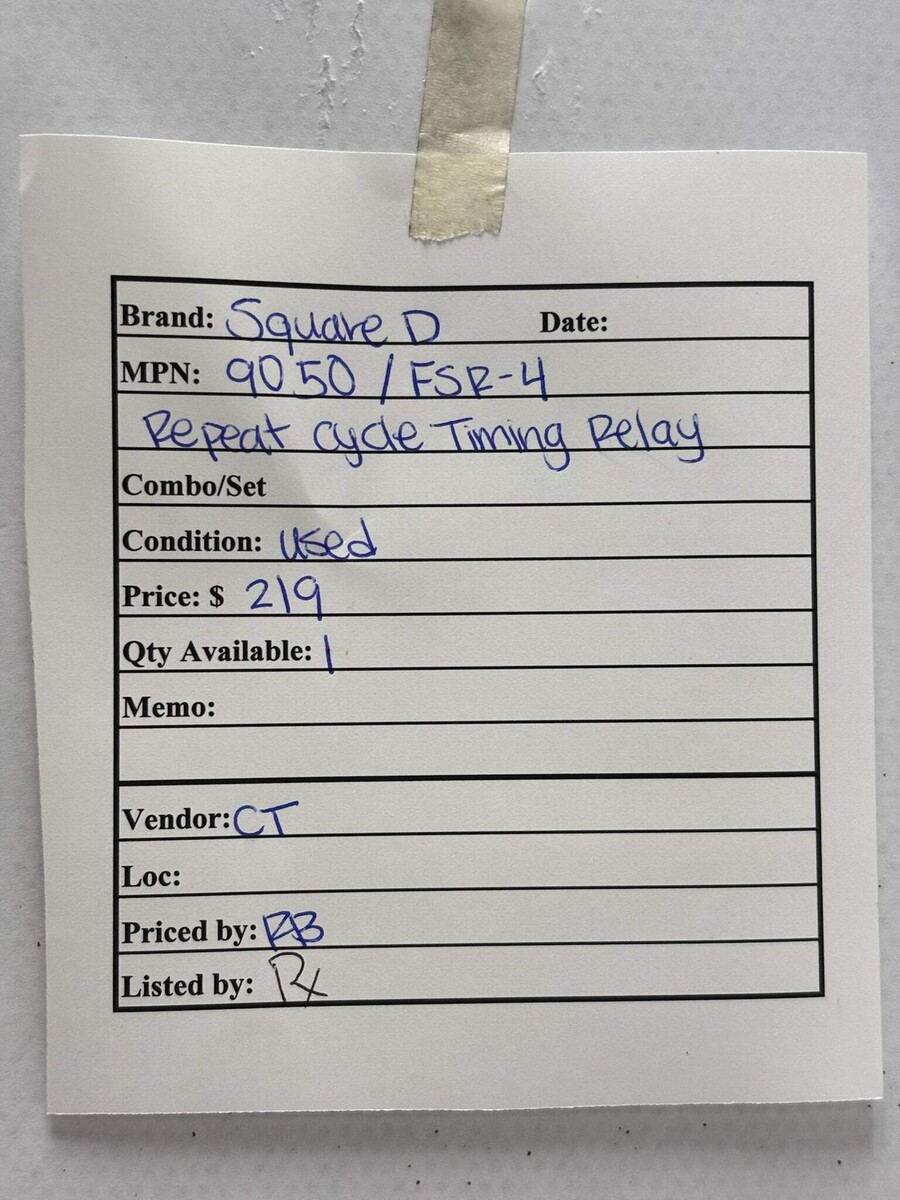 Brand: Square D Date:
MPN: 9050 / FSR-4
Repeat cycle Timing Relay
Combo/Set
Condition: used
Price: $ 219
Qty Available: 1
Memo:
Vendor: CT
Loc:
Priced by: RB
Listed by: Rx